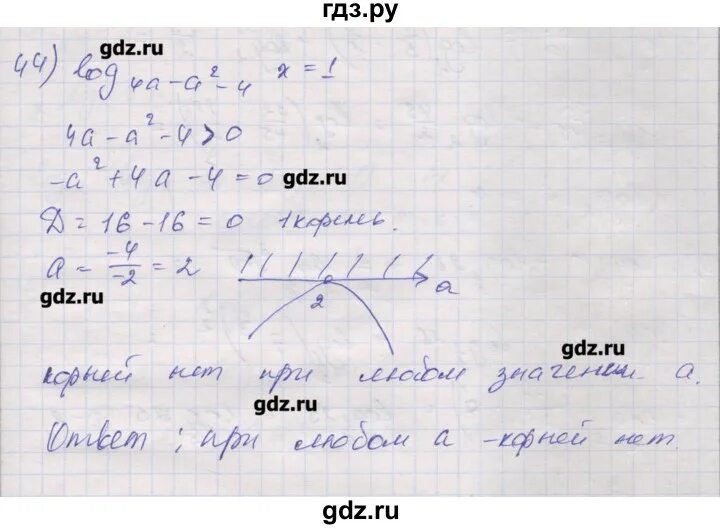 гдз.ру
gdz.ru
44) log 4a-a²-4 x = 1
4a - a² - 4 > 0
-a² + 4a - 4 = 0 gdz.ru
D = 16 - 16 = 0 1 корень.
a = -4/-2 = 2
2 a
gdz.ru
gdz.ru
корней нет при любом значении a.
gdz.ru
Ответ: при любом a - корней нет.
gdz.ru